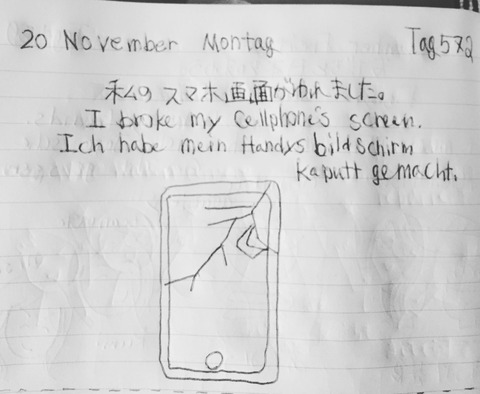 20 November Montag Tag 572
私のスマホ画面がわれました。
I broke my cellphone's screen.
Ich habe mein Handys bildschirm
kaputt gemacht.